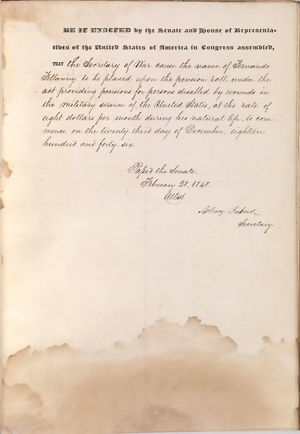 BE IT ENACTED by the Senate and House of Representa-
tives of the United States of America in Congress assembled,
THAT the Secretary of War cause the name of Fernando
to be placed upon the pension roll, under the
act providing pensions for persons disabled by wounds in
the military service of the United States, at the rate of
eight dollars per month during his natural life, to com-
mence on the twenty third day of December, eighteen
hundred and forty six.
Passed the Senate
February 28, 1848.
Attest
Secretary.